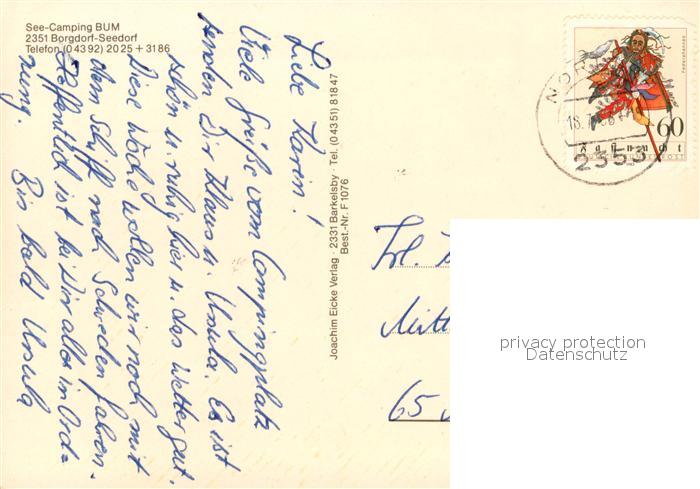 See-Camping BUM
2351 Borgdorf-Seedorf
Telefon (0 43 92) 20 25 + 31 86
Liebe Karin!
Viele Grüße vom Campingplatz
senden Dir Klaus u. Ursula. Es ist
schön u. ruhig hier u. das Wetter gut.
Diese Woche wollen wir noch mit
dem Schiff nach Schweden fahren.
Hoffentlich ist bei Dir alles in Ord-
nung. Bis bald Ursula
Joachim Eicke Verlag · 2331 Barkelsby · Tel. (0 43 51) 8 18 47
Best.-Nr. F1076
Federahannes
60
Fasnacht
NOR
18.
2353
Frl.
Mitt
65
privacy protection
Datenschutz